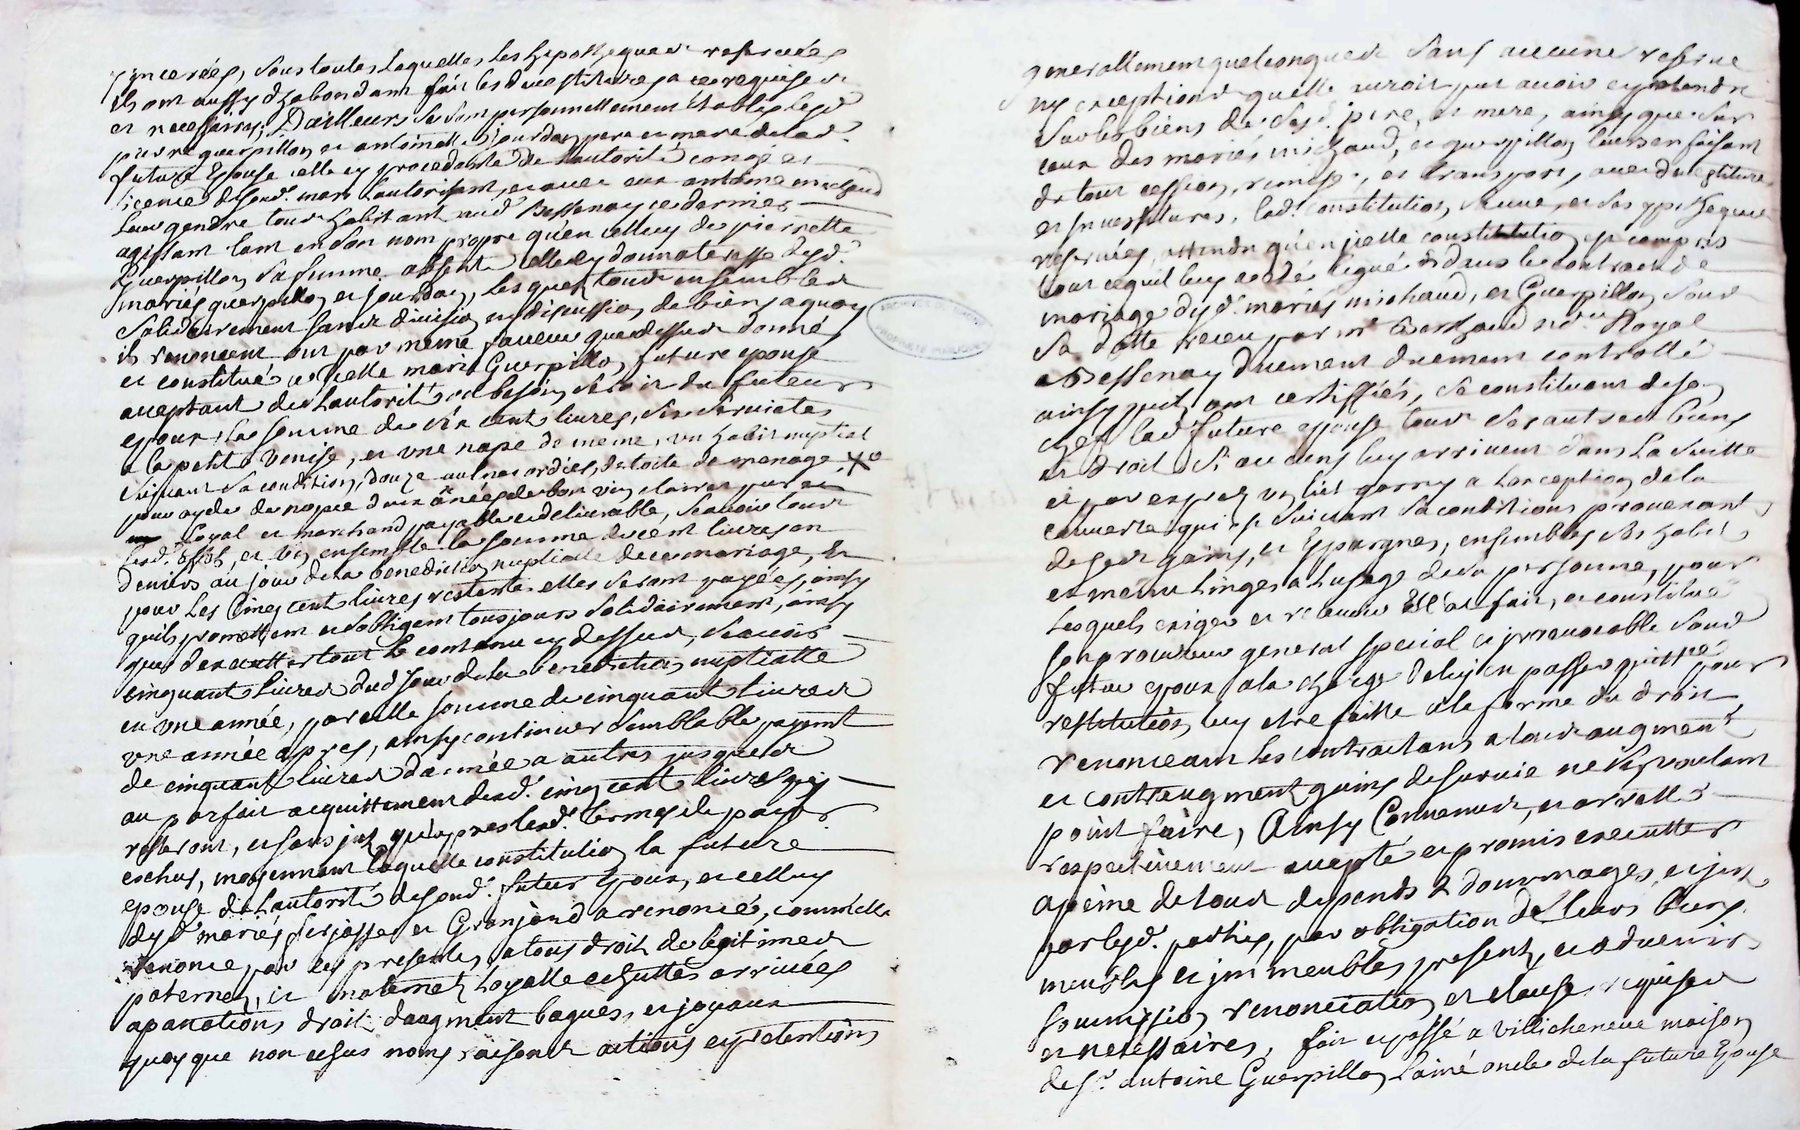 sinceres, sous toutes laquelles les hipotheques reservées
ils ont aussy d'habondant fait les devestitures a ce requises
et necessaires; D'ailleurs se sont personnellement établis lesd.
pierre guerpillon et antoinette Jourdan pere et mere de lad.
future Epouse celle cy procedante de l'autorité congé et
licence desond. mary l'autorisant, et avec eux antoine michaud
Leur gendre tous habitant aud. Bessenay ce dernier
agissant tant en son nom propre qu'en celluy de pierrette
Guerpillon sa femme absente elle cy donnateresse desd.
mariés guerpillon et jourdan, lesquels tous ensembles
solidairement sans division ny discussion de biens a quoy
ils renoncent ont par meme faveur que dessus donné
et constitué a icelle marie Guerpillon future epouse
aceptant de l'autorité que besoin seroit du futeur
epoux, La somme de six cent livres, six serviettes
a la petite Venise, et une nape de meme, un habit nuptial
suivant sa condition, douze aulnes ordies de toile de menage
pour ayde de nopce deux anées de bon vin clairet pur et
Loyal et marchand payable et delivrable, sçavoir tous
lesd. effets, et vin ensemble la somme de cent livres en
deniers au jour de la benediction nuptialle de ce mariage, Et
pour les Cinq cent livres restante elles seront payées, ainsy
qu'ils promettent et s'obligent tousjours solidairement, ainsy
que d'executter tout le contenu cy dessus, sçavoir
cinquante livres dud. jour de la benediction nuptialle
en une année, pareille somme de cinquante livres
une année apres, ainsy continuer semblable payemt
de cinquante livres d'année a autres jusques
au parfait acquittement desd. cinq cent livres qui
resteront, et sans jnt. qu'apres lesd. termes de payer
eschus, moyennant laquelle constitution la future
epouse de l'autorité desond. futur Epoux, et celluy
desd. mariés ferjasse et Granjard a renoncé, comm'elle
renonce par ces presentes, a tous droit de legitimes
paternel, et maternel, loyalle echuttes arrivées
aparations droit d'augment bagues, et joyaux
quoy que non ecsus noms, raisons actions et pretentions
generallement quelconques Sans aucune reserve
ny exceptions quelle auroit put avoir et pretendre
sur les biens de sesd. pere, et mere, ainsy que sur
ceux des mariés michaud, et guerpillon leurs en faisant
de tout cession, remise, et transport, avec devestitures
et Investitures, lad. constitution sauve, et ses ypotheques
reservées, attendu qu'en jcelle constitution est compris
tout ce quil luy a esté legué dans le contract de
mariage desd. mariés michaud, et Guerpillon pour
sa dotte receu par me Berthaud not.re Royal
a Bessenay duement duement controllé
ainsy quil ont certiffiés, se constituant deson
chef lad. future epouse tous ses autres biens
et droit si aucuns luy arrivent dans La suitte
et par exprez un lict garny a l'exception de la
couverte qui est suivant sa conditions provenant
de ses gains, et Epargnes, ensembles ses habits
et menu linges a l'usage de sa personne, pour
lesquels exiger et recevoir Elle a fait, et constitué
son procureur general special et irrevocable Sond.
futur epoux a la charge delujen passer quittce pour
restitution luy etre faitte a la forme du droit
renonceant les contractans a tous augment
et contraugment gains de survie ne s'en voulant
point faire, Ainsy Convenus, et arretté
respectivement accepté et promis executter
apeine de tous depends & dommages, et jnts
par lesd. parties, par obligation de Leurs biens
meubles et jmmeubles present, et advenir
soummission, renonciation et clauses requises
et necessaires, fait et passé a Villecheneve maison
de Sr. antoine Guerpillon L'ainé oncle de la future Epouse